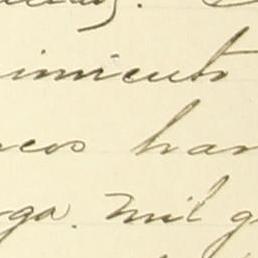 imiento
cos han
ga. Mil g